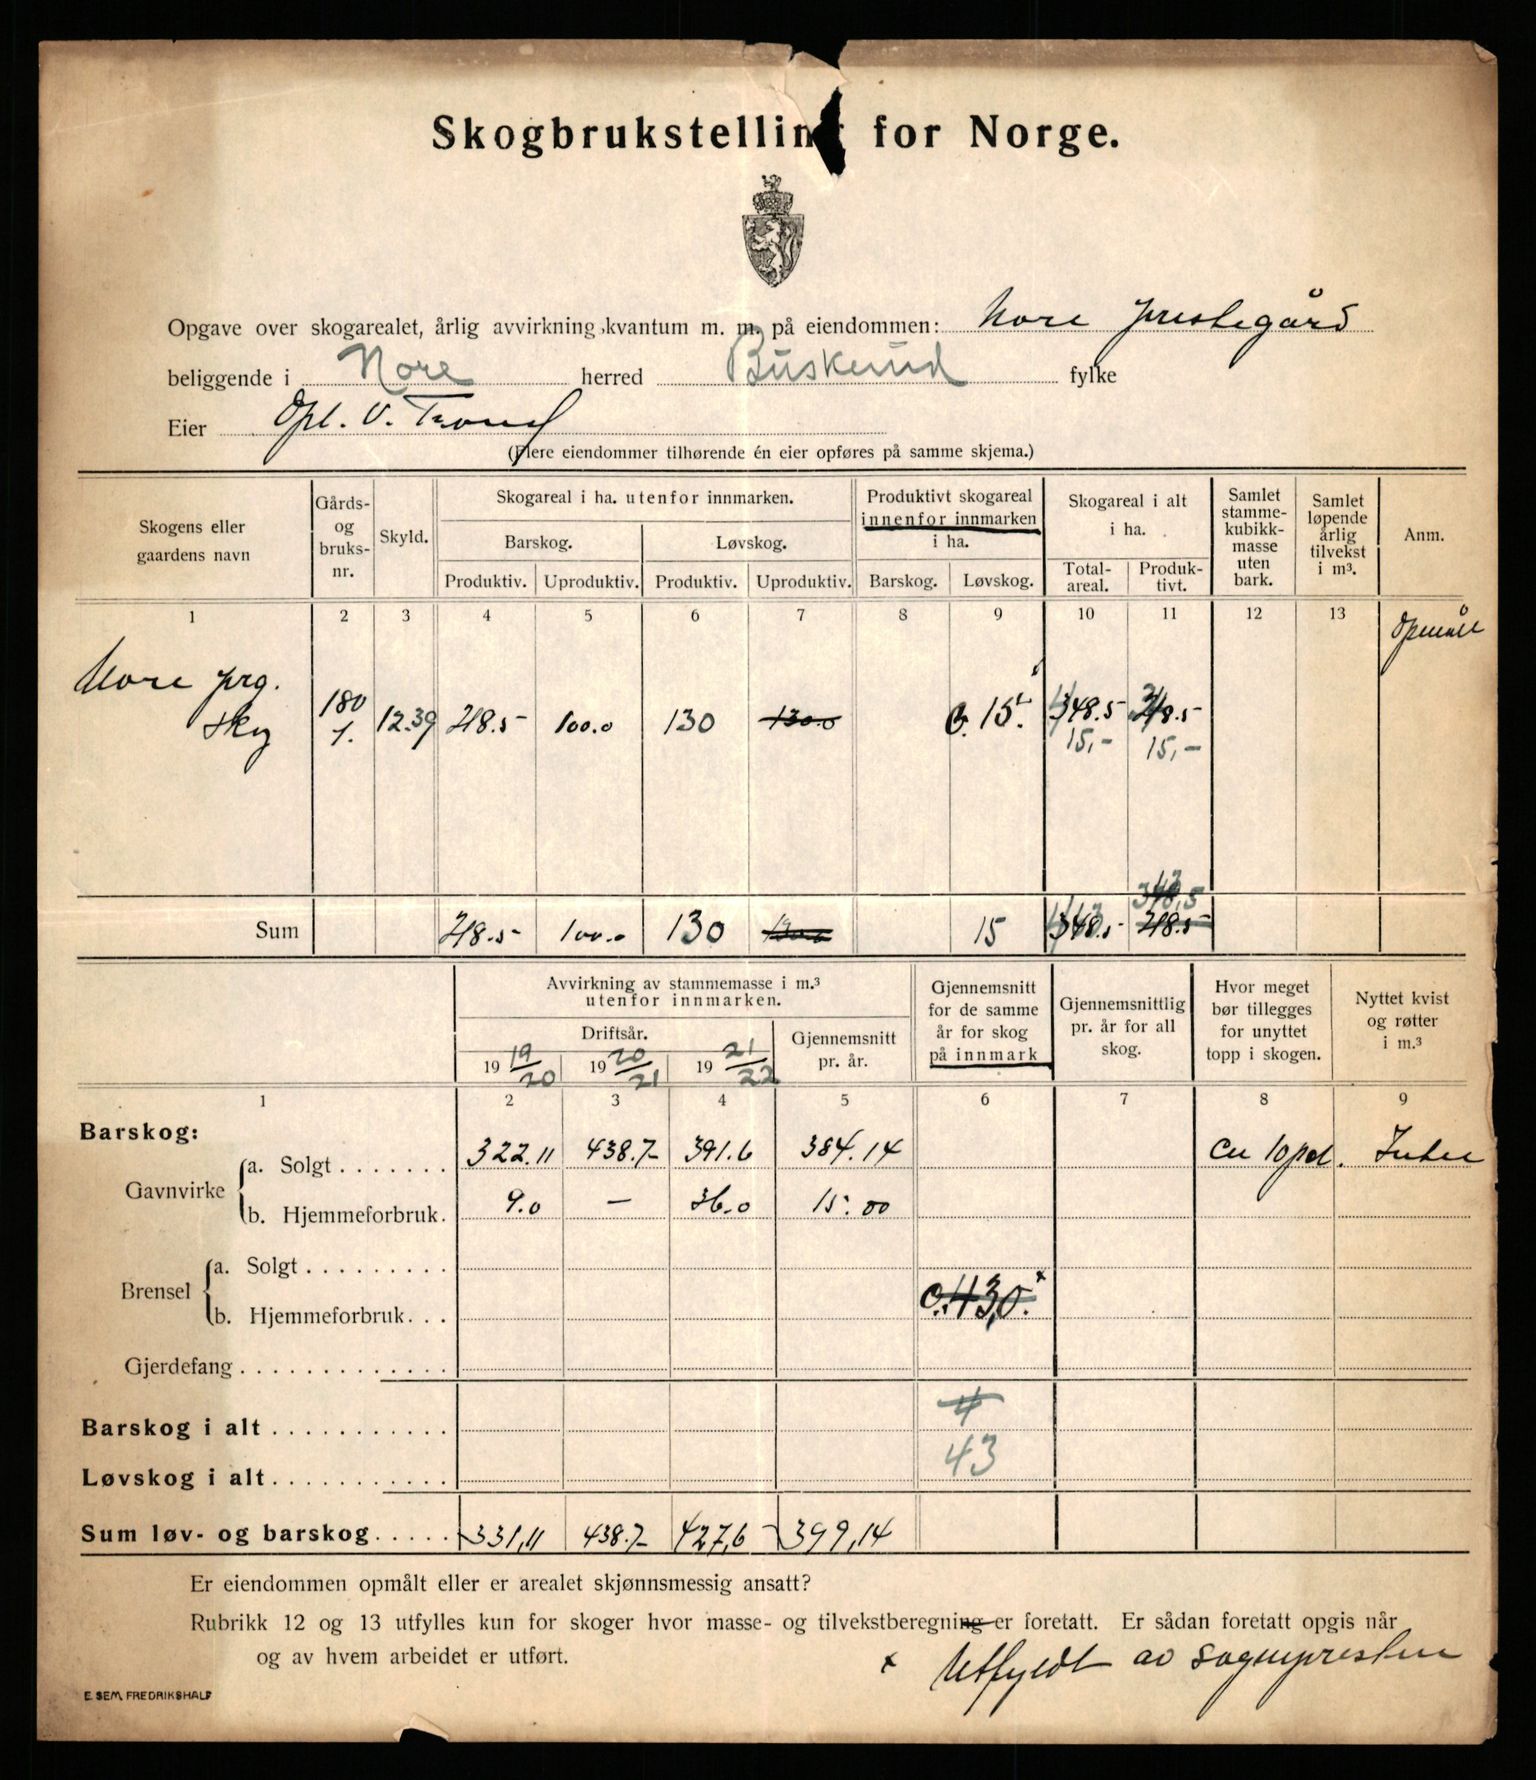 Skogbrukstelling for Norge.
Opgave over skogarealet, årlig avvirkning kvantum m. m. på eiendommen: Nore prestegård
beliggende i Nore herred Buskerud fylke
Eier Opl. V.
(Flere eiendommer tilhørende én eier opføres på samme skjema.)
Skogens eller gaardens navn | Gårds- og bruks- nr. | Skyld. | Skogareal i ha. utenfor innmarken. | Produktivt skogareal innenfor innmarken i ha. | Skogareal i alt i ha. | Samlet stamme- kubikk- masse uten bark. | Samlet løpende årlig tilvekst i m³. | Anm.
Barskog. | Løvskog.
Produktiv. | Uproduktiv. | Produktiv. | Uproduktiv. | Barskog. | Løvskog. | Total- areal. | Produk- tivt.
1 2 3 4 5 6 7 8 9 10 11 12 13
Opmålt
Nore prg. 180 12.39 218.5 100.0 130 130.0 c. 15. 348.5 218.5
skog 1. 15,- 15,-
343,5
Sum 218.5 100.0 130 130.0 15 348.5 218.5
Avvirkning av stammemasse i m.³ utenfor innmarken. | Gjennemsnitt for de samme år for skog på innmark | Gjennemsnittlig pr. år for all skog. | Hvor meget bør tillegges for unyttet topp i skogen. | Nyttet kvist og røtter i m.³
Driftsår. | Gjennemsnitt pr. år.
19 19/20 | 19 20/21 | 19 21/22
1 2 3 4 5 6 7 8 9
Barskog:
Gavnvirke a. Solgt . . . . . . . 322.11 438.7- 391.6 384.14 ca 10 pct. Intet
b. Hjemmeforbruk. 9.0 — 36.0 15.00
Brensel a. Solgt . . . . . . . . .
b. Hjemmeforbruk. . . c. 43,0. x
Gjerdefang . . . . . . . . . . . . .
Barskog i alt . . . . . . . . . . . 4
Løvskog i alt . . . . . . . . . . . 43
Sum løv- og barskog . . . . . 331,11 438.7- 427,6 399,14
Er eiendommen opmålt eller er arealet skjønnsmessig ansatt?
Rubrikk 12 og 13 utfylles kun for skoger hvor masse- og tilvekstberegning er foretatt. Er sådan foretatt opgis når
og av hvem arbeidet er utført.
x Utfyldt av sognepresten
E. SEM, FREDRIKSHALD